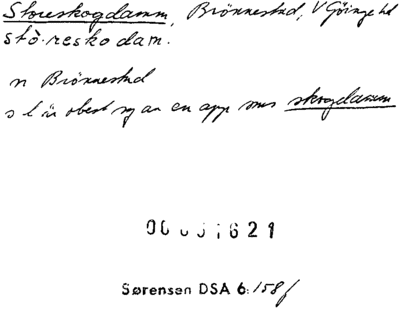 Storeskogdamm, Brönnestad, V Göinge hd
stò·resko dam.
n Brönnestad
s l är obest sg av en app sms skogdamm
00001621
Sørensen DSA 6: 158 f